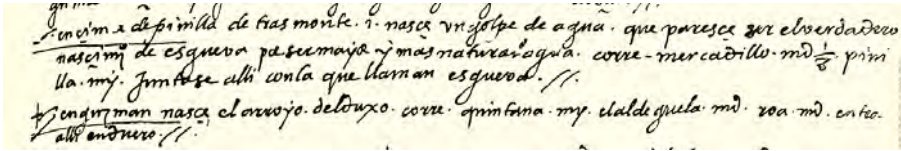 encima de pinilla de tras monte. i. nasçe vn golpe de agua. que paresçe ser el verdadero
nasçimỹ de esgueva por ser mayor y mas natural agua. corre. mercadillo. md ½ pini
lla. my. Juntase alli con la que llaman esgueva. //.
en guzman nasçe el arroyo. del duxo. corre. quintana. my. elaldeguela. md. roa. md. entro.
alli en duero. //.